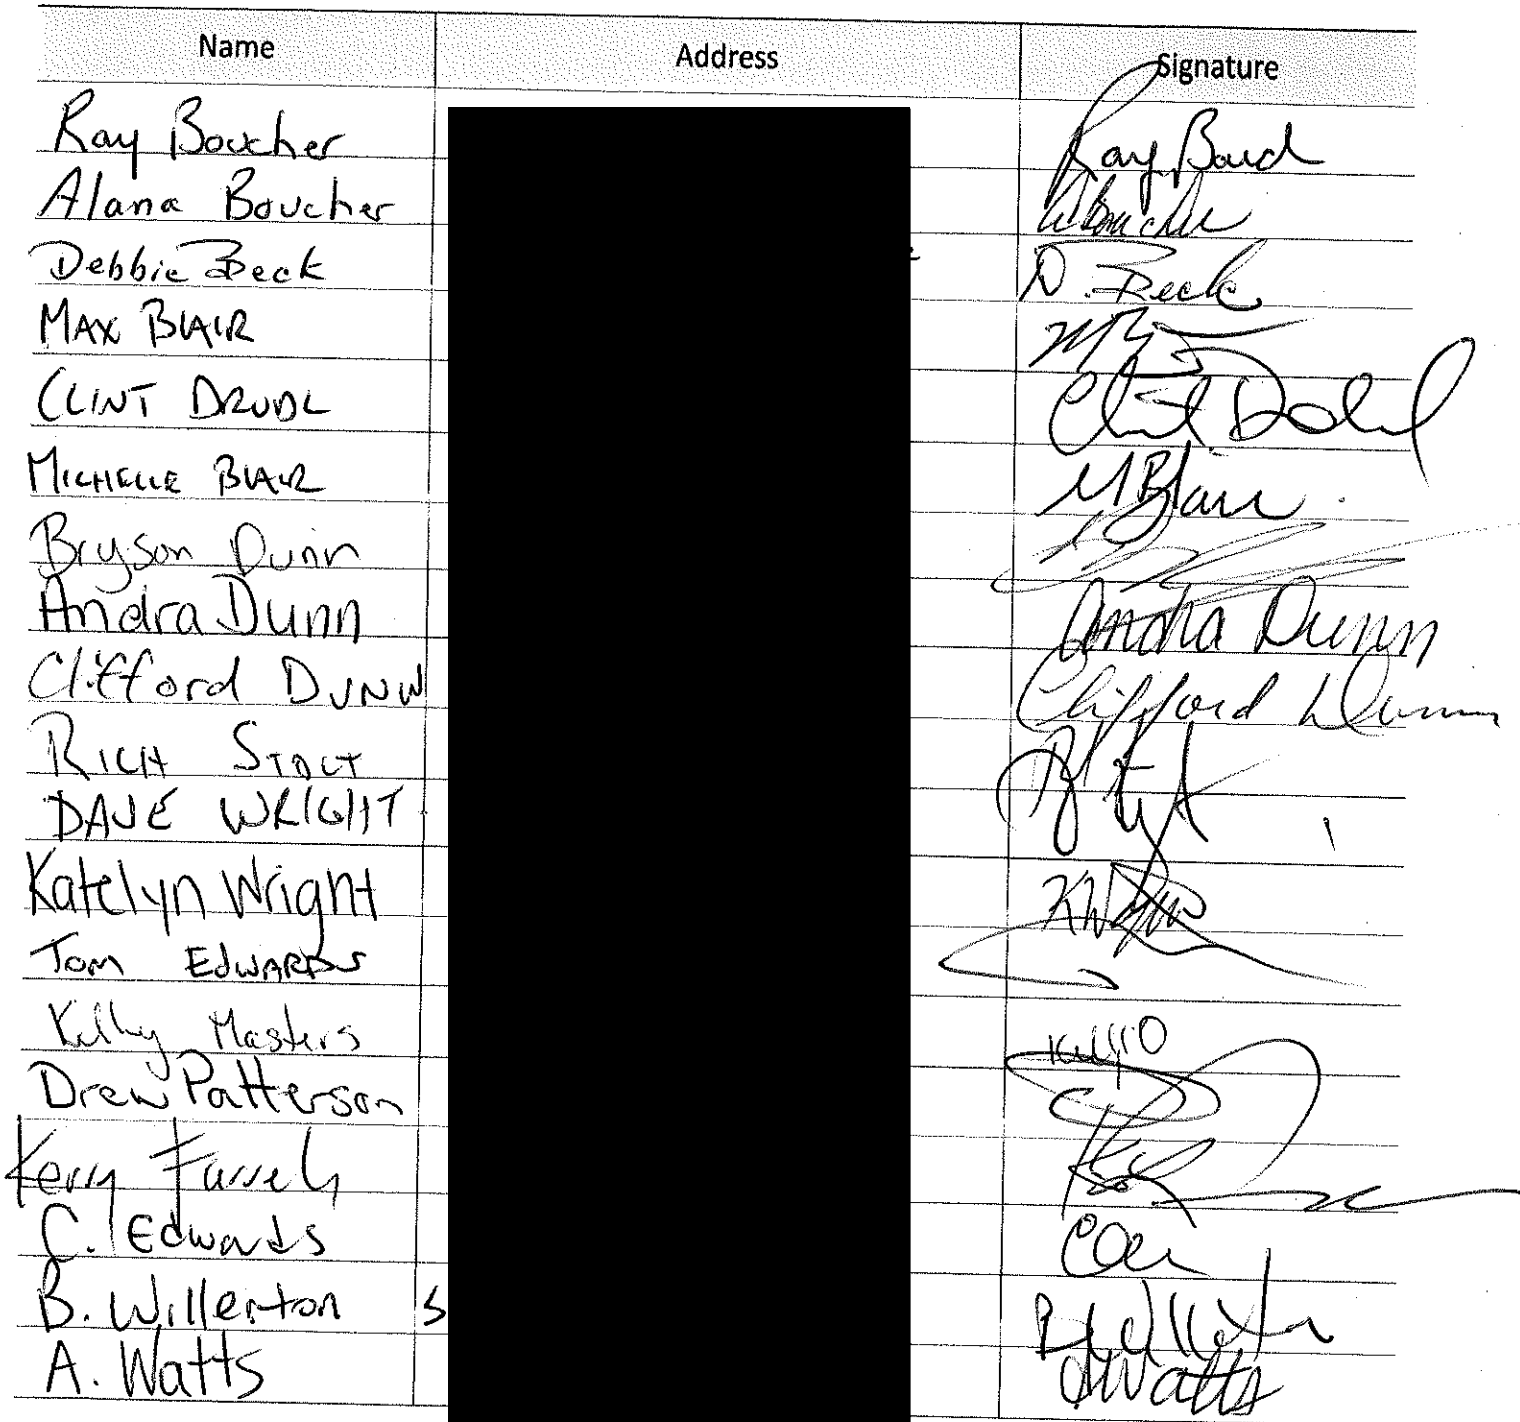 Name Address Signature
Ray Boucher Ray Bouch
Alana Boucher A Boucher
Debbie Beck D. Beck
MAX BLAIR
CLINT DRUDL Clint
MICHELLE BLAIR M Blair
Bryson Dunn
Andra Dunn Andra Dunn
Clifford DUNN Clifford Dunn
RICH STOLT
DAVE WRIGHT
Katelyn Wright
TOM EDWARDS
Kelly Masters
Drew Patterson
Kerry Farrell
C. Edwards
B. Willerton
A. Watts A Watts